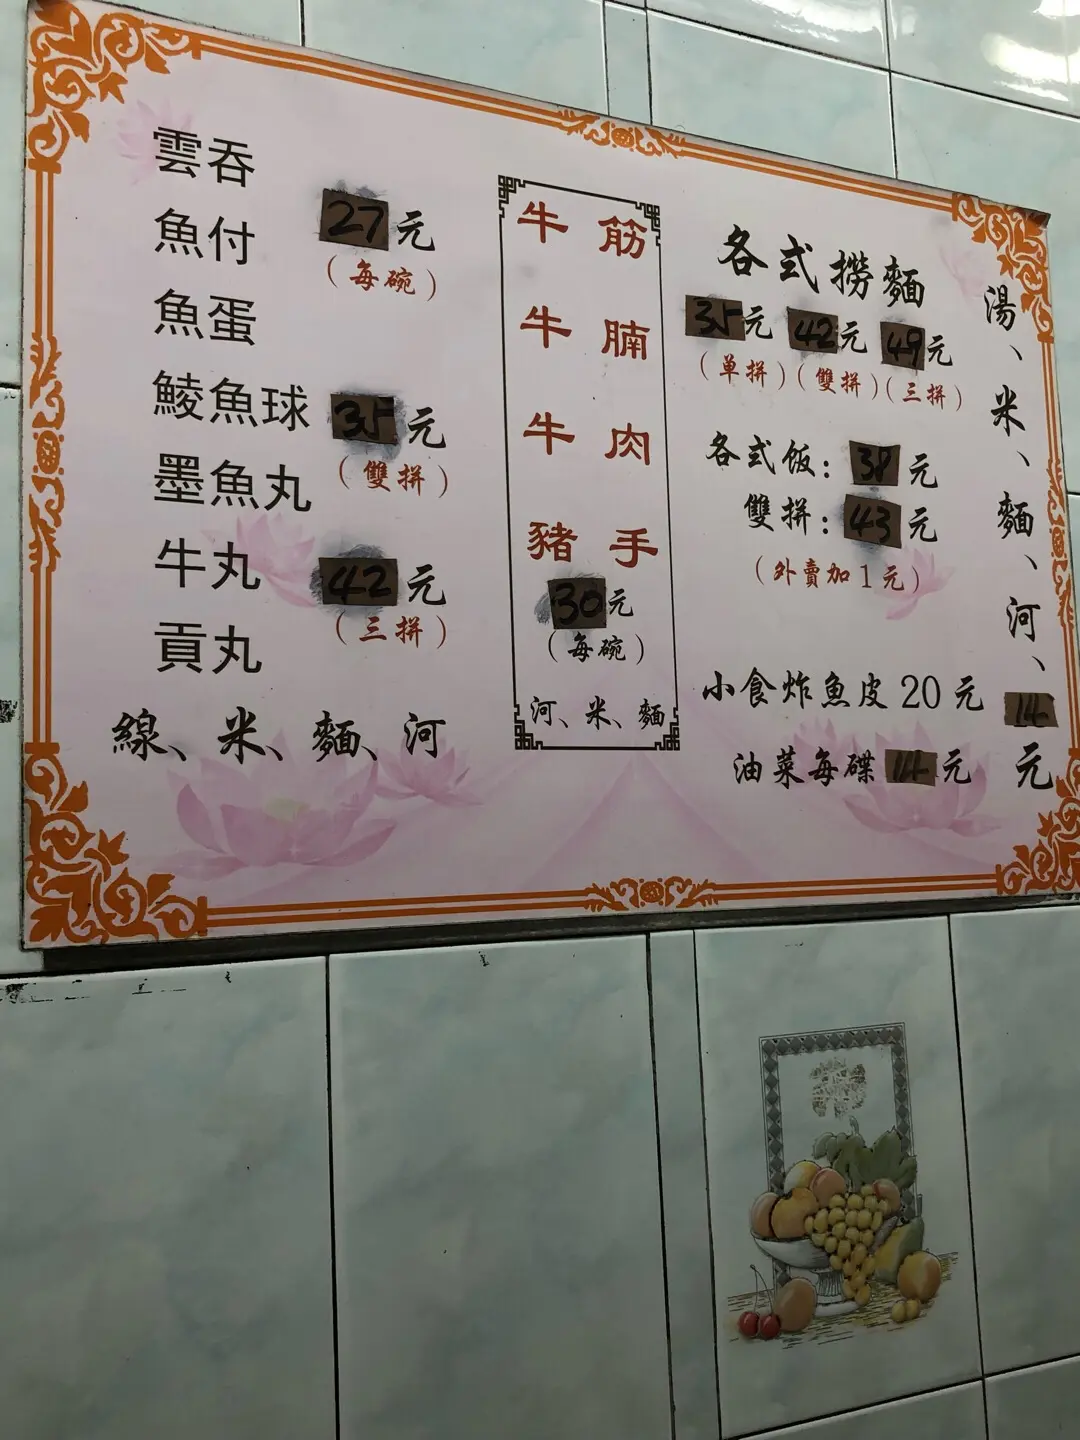 雲吞
魚付
魚蛋
鯪魚球
墨魚丸
牛丸
貢丸
27元
（每碗）
35元
（雙拼）
42元
（三拼）
線、米、麵、河
牛筋
牛腩
牛肉
豬手
30元
（每碗）
河、米、麵
各式撈麵
35元 42元 49元
（单拼）（雙拼）（三拼）
各式饭：38元
雙拼：43元
（外賣加1元）
小食炸魚皮20元
油菜每碟14元
湯、米、麵、河、14元